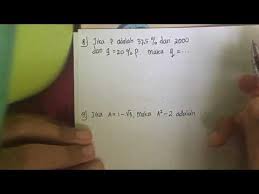 8) Jika P adalah 37,5 % dari 2000
dan q = 20 % p maka q = ...
9) Jika A = 1 - √3, maka A² - 2 adalah